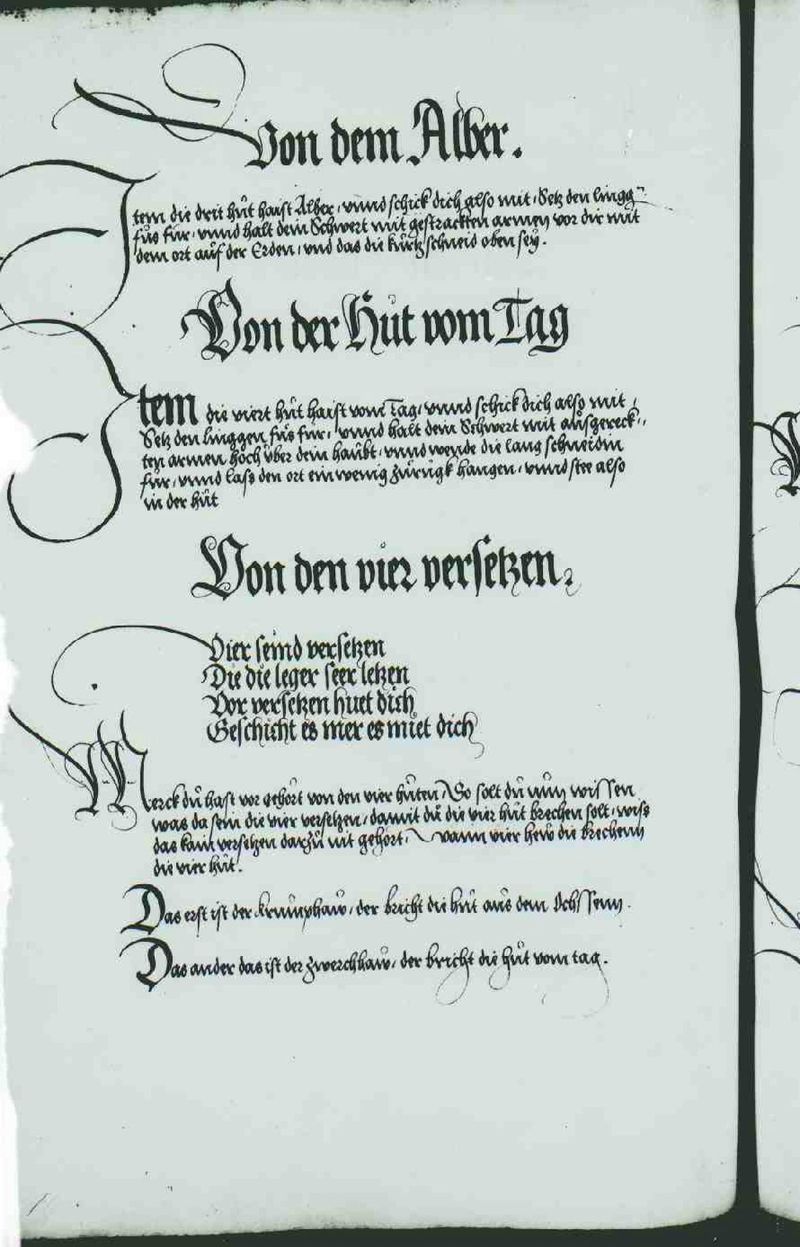 Von dem Alber.
Item die drit hůt haist Alber, vnnd schick dich also mit, Setz den lingg̃
fůs für, vnnd halt dein Schwert mit gestrackten armen vor dir mit
dem ort auf der Erden, vnd das die kůrtz schneid oben seÿ.
Von der Hůt vom Tag
Item die viert hůt haist vom Tag, vnnd schick dich also mit,
Setz den linggen fůs für, vnnd halt dein Schwert mit ausgereck,,
ten armen hoch über dein haubt, vnnd wende die lang schneidin
für, vnnd lass den ort ein wenig zůrugk hangen, vnnd stee also
in der hůt
Von den vier versetzen.
Vier seind versetzen
Die die leger seer letzen
Vor versetzen huet dich
Geschicht es mer es müet dich
Merck du hast vor gehört von den vier hůten, So solt dů nůn wissen
was da sein die vier versetzen, damit dů die vier hůt brechen solt, wiss
das kain versetzen darzů nit gehört, wann vier hew die brechenn
die vier hůt.
Das erst ist der krumphaw, der bricht die hůt aus dem Ochssenn.
Das ander das ist der zwerchhaw, der bricht die hůt vom tag.